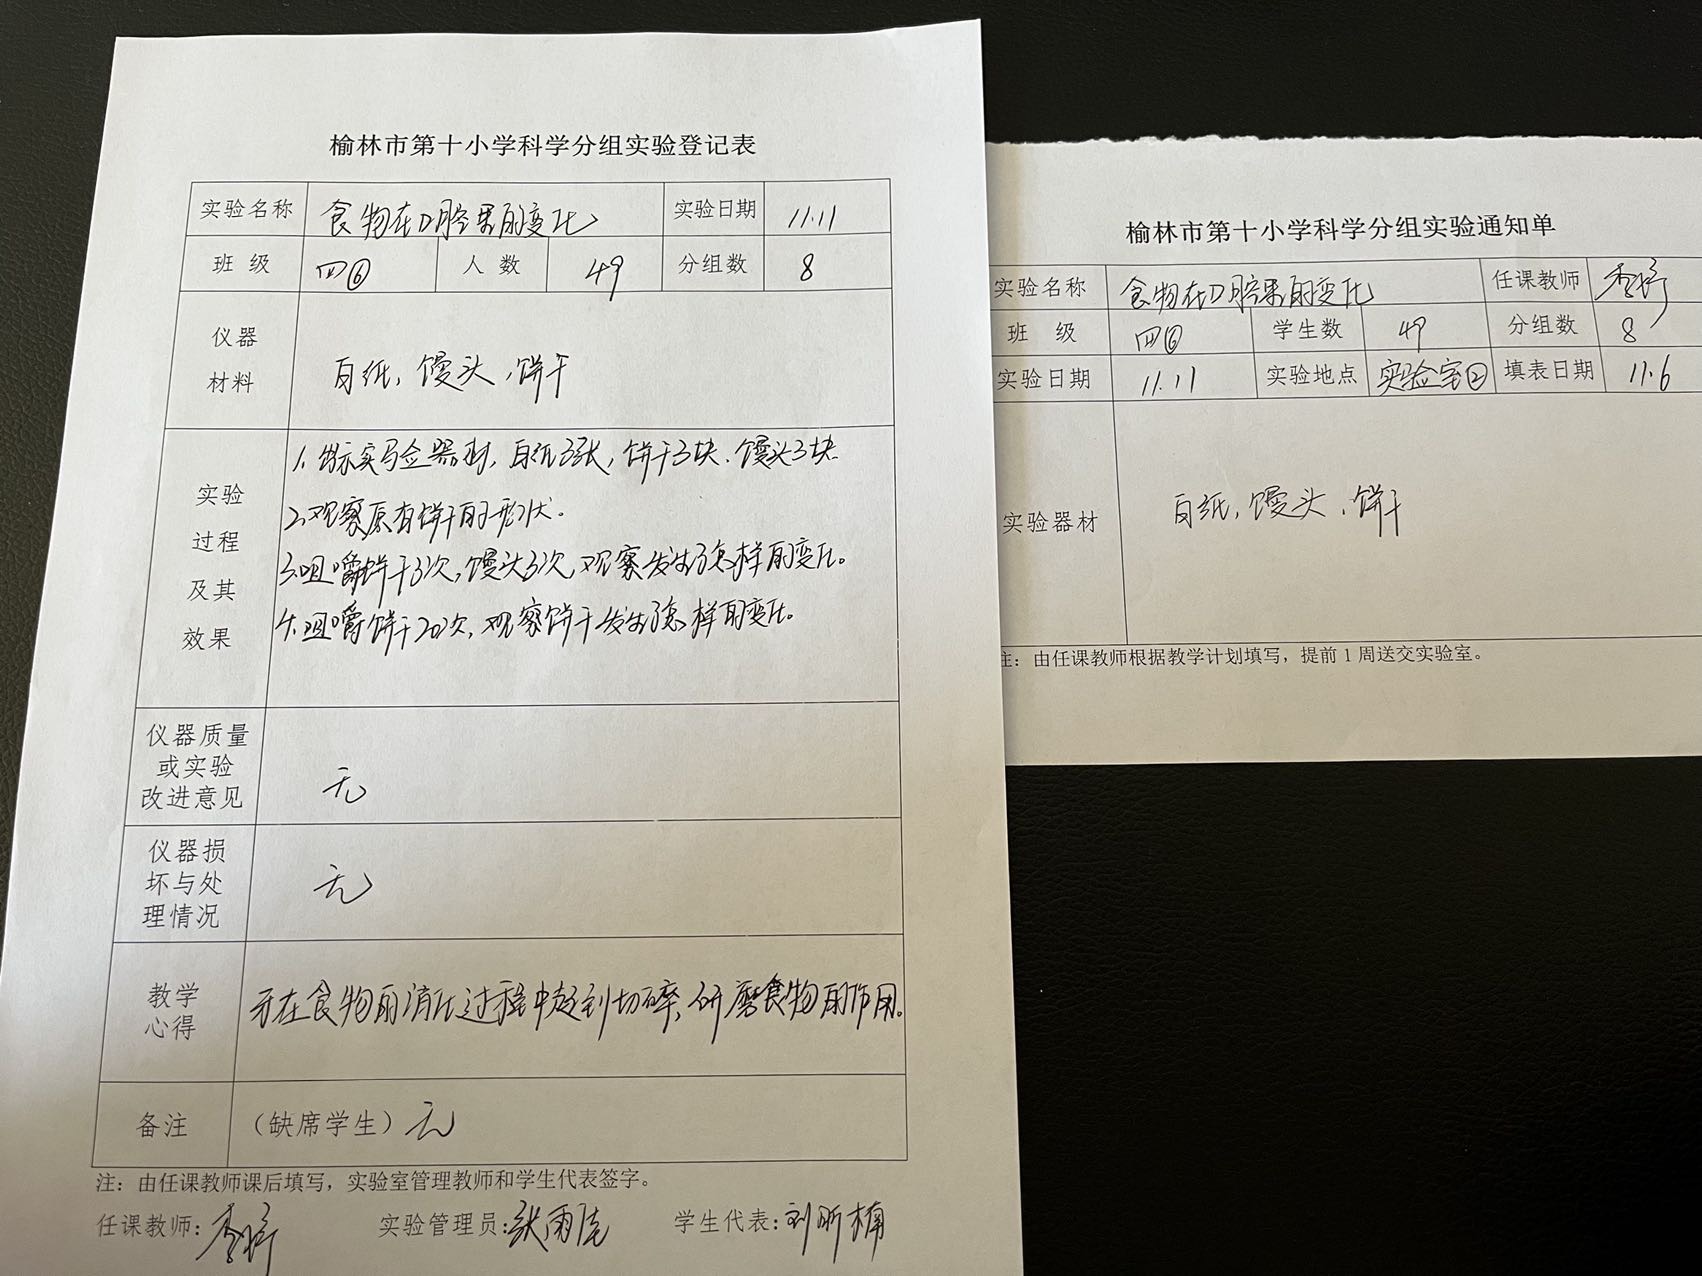 榆林市第十小学科学分组实验登记表
实验名称 食物在口腔里的变化 实验日期 11.11
班 级 四⑥ 人 数 49 分组数 8
仪器
材料
白纸，馒头，饼干
实验
过程
及其
效果
1. 出示实验器材，白纸3张，饼干3块．馒头3块．
2. 观察原有饼干的形状．
3. 咀嚼饼干3次，馒头3次，观察发生了怎样的变化。
4. 咀嚼饼干20次，观察饼干发生了怎样的变化。
仪器质量
或实验
改进意见
无
仪器损
坏与处
理情况
无
教学
心得
牙在食物的消化过程中起到切碎，研磨食物的作用。
备注 （缺席学生）无
注：由任课教师课后填写，实验室管理教师和学生代表签字。
任课教师: 李 实验管理员:张雨佳 学生代表:刘昕楠
榆林市第十小学科学分组实验通知单
实验名称 食物在口腔里的变化 任课教师 李
班 级 四⑥ 学生数 49 分组数 8
实验日期 11.11 实验地点 实验室② 填表日期 11.6
实验器材 白纸，馒头，饼干
注：由任课教师根据教学计划填写，提前 1 周送交实验室。